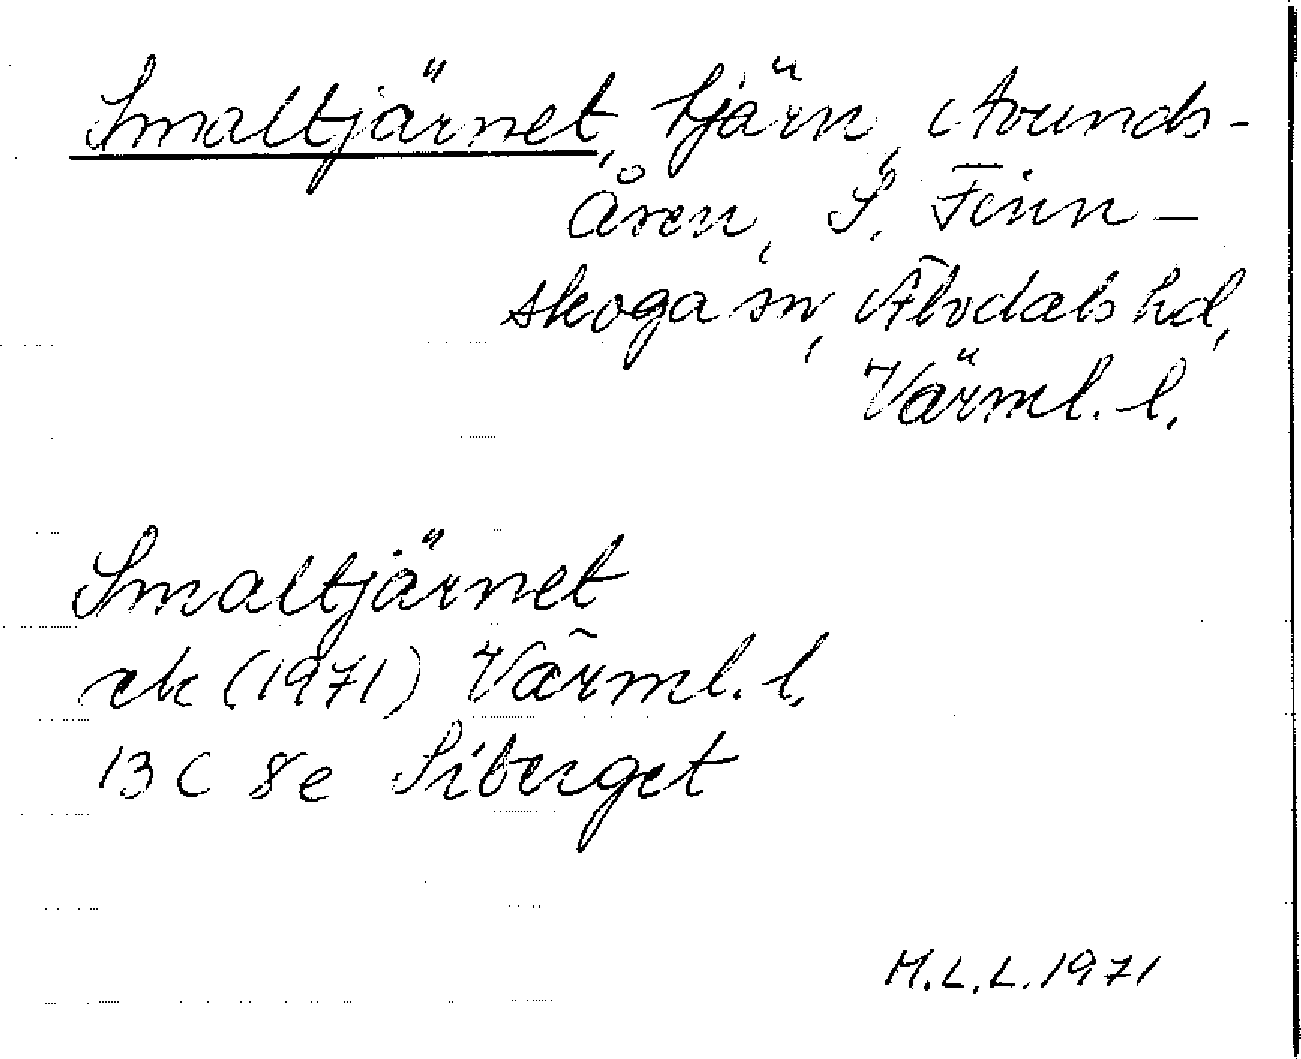 Smaltjärnet, tjärn, Avunds-
åsen, S. Finn-
skoga sn, Älvdals hd,
Värml. l.
Smaltjärnet
ek (1971) Värml. l.
13 C 8e Siberget
M.L.L. 1971